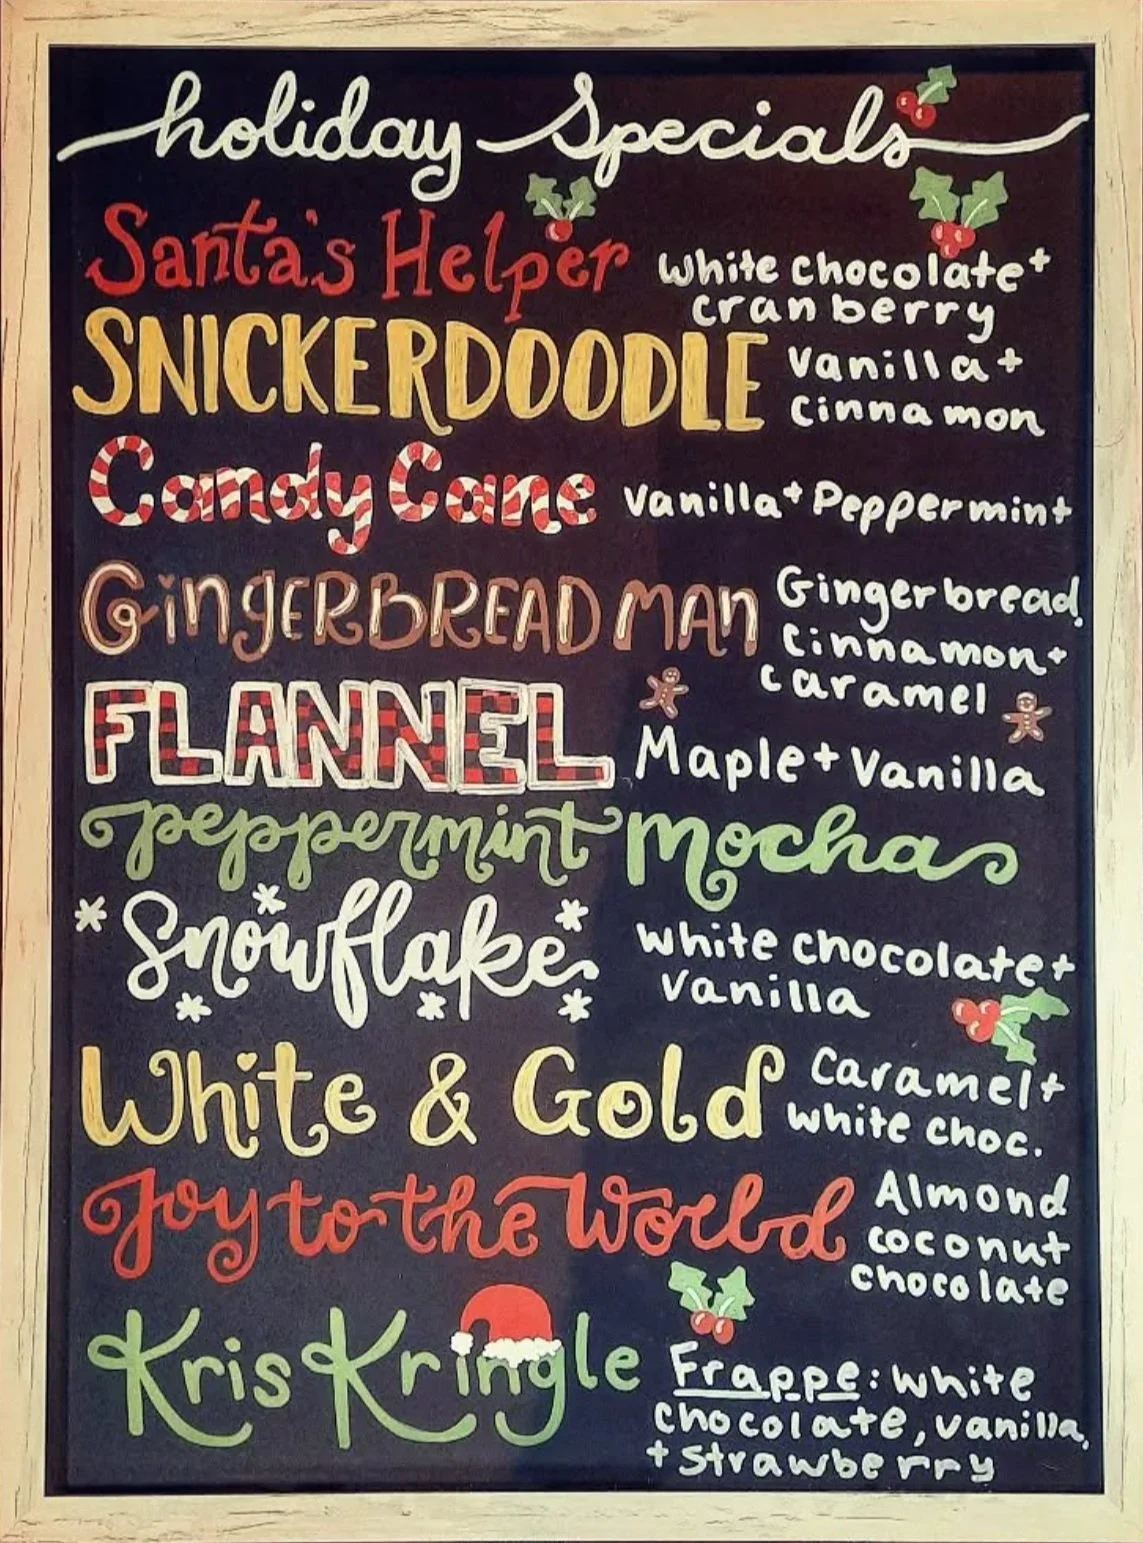 holiday Specials
Santa's Helper
white chocolate +
cranberry
SNICKERDOODLE
Vanilla +
Cinnamon
Candy Cane
Vanilla + Peppermint
GingERBREAD MAn
Gingerbread,
Cinnamon +
caramel
FLANNEL
Maple + Vanilla
peppermint mocha
Snowflake
white chocolate +
Vanilla
White & Gold
Caramel +
white choc.
Joy to the World
Almond
coconut
chocolate
Kris Kringle
Frappe: white
chocolate, vanilla,
+ strawberry